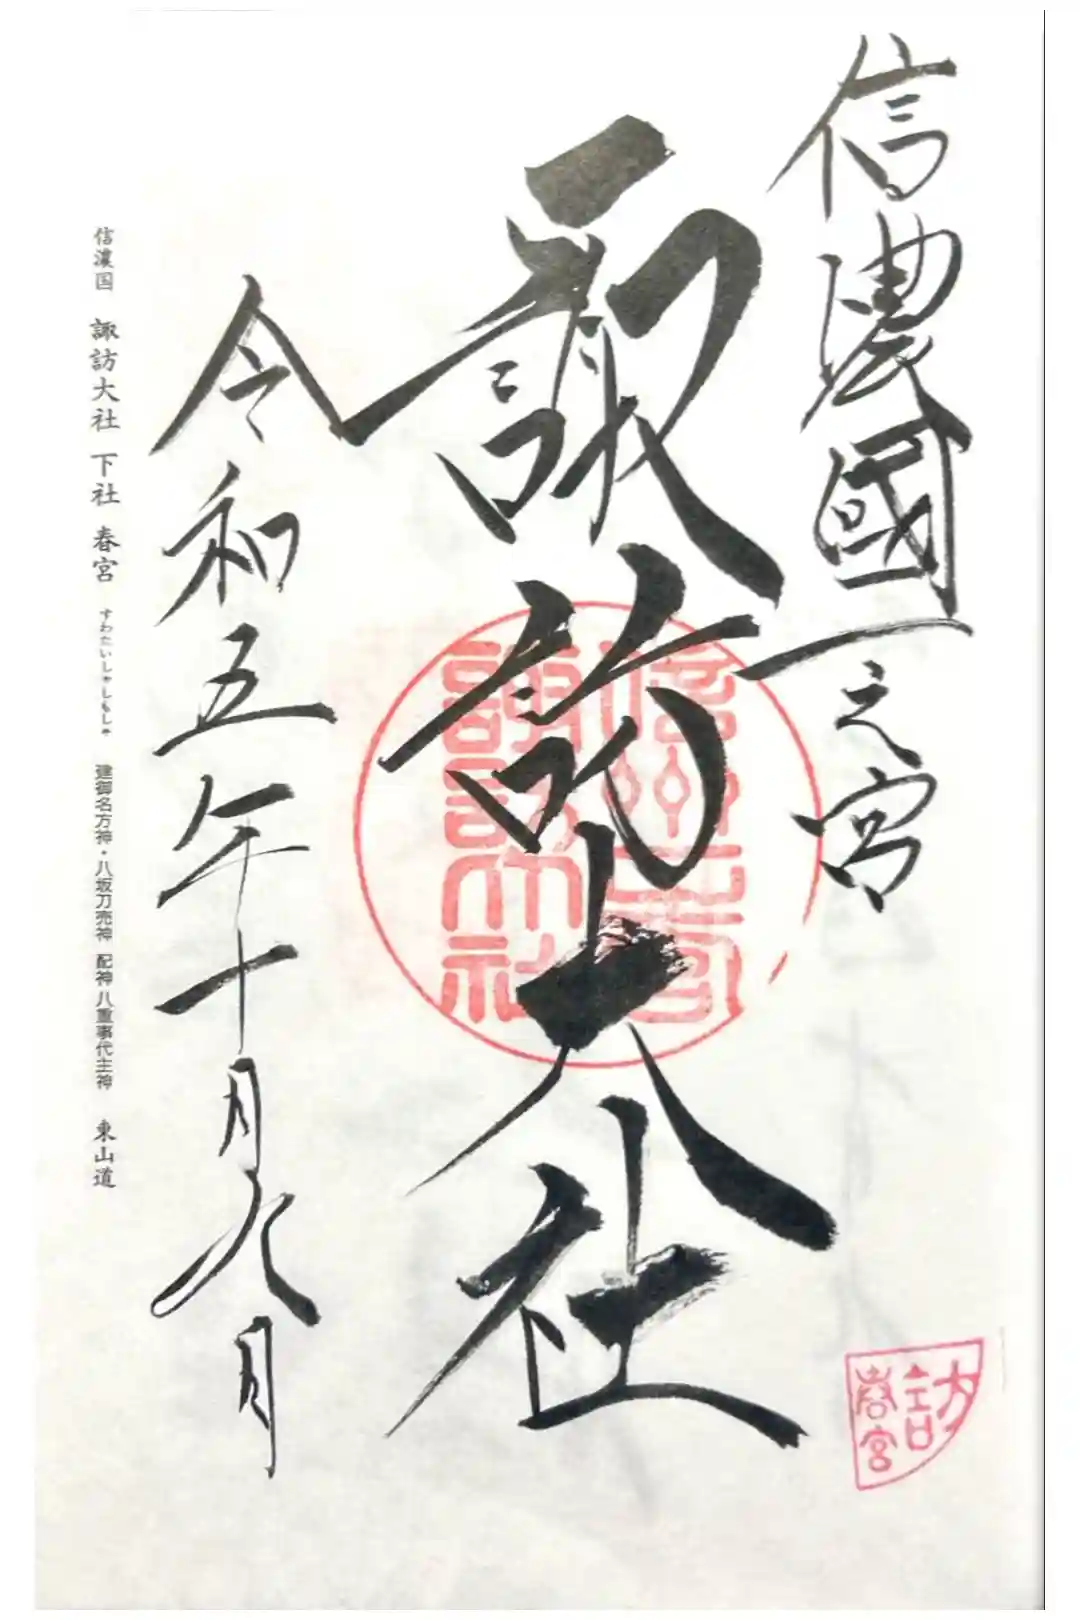 信濃國一之宮
諏訪大社
令和五年十月九日
信濃国 諏訪大社 下社 春宮 すわたいしゃしもしゃ 建御名方神・八坂刀売神 配神 八重事代主神 東山道
訪
春宮